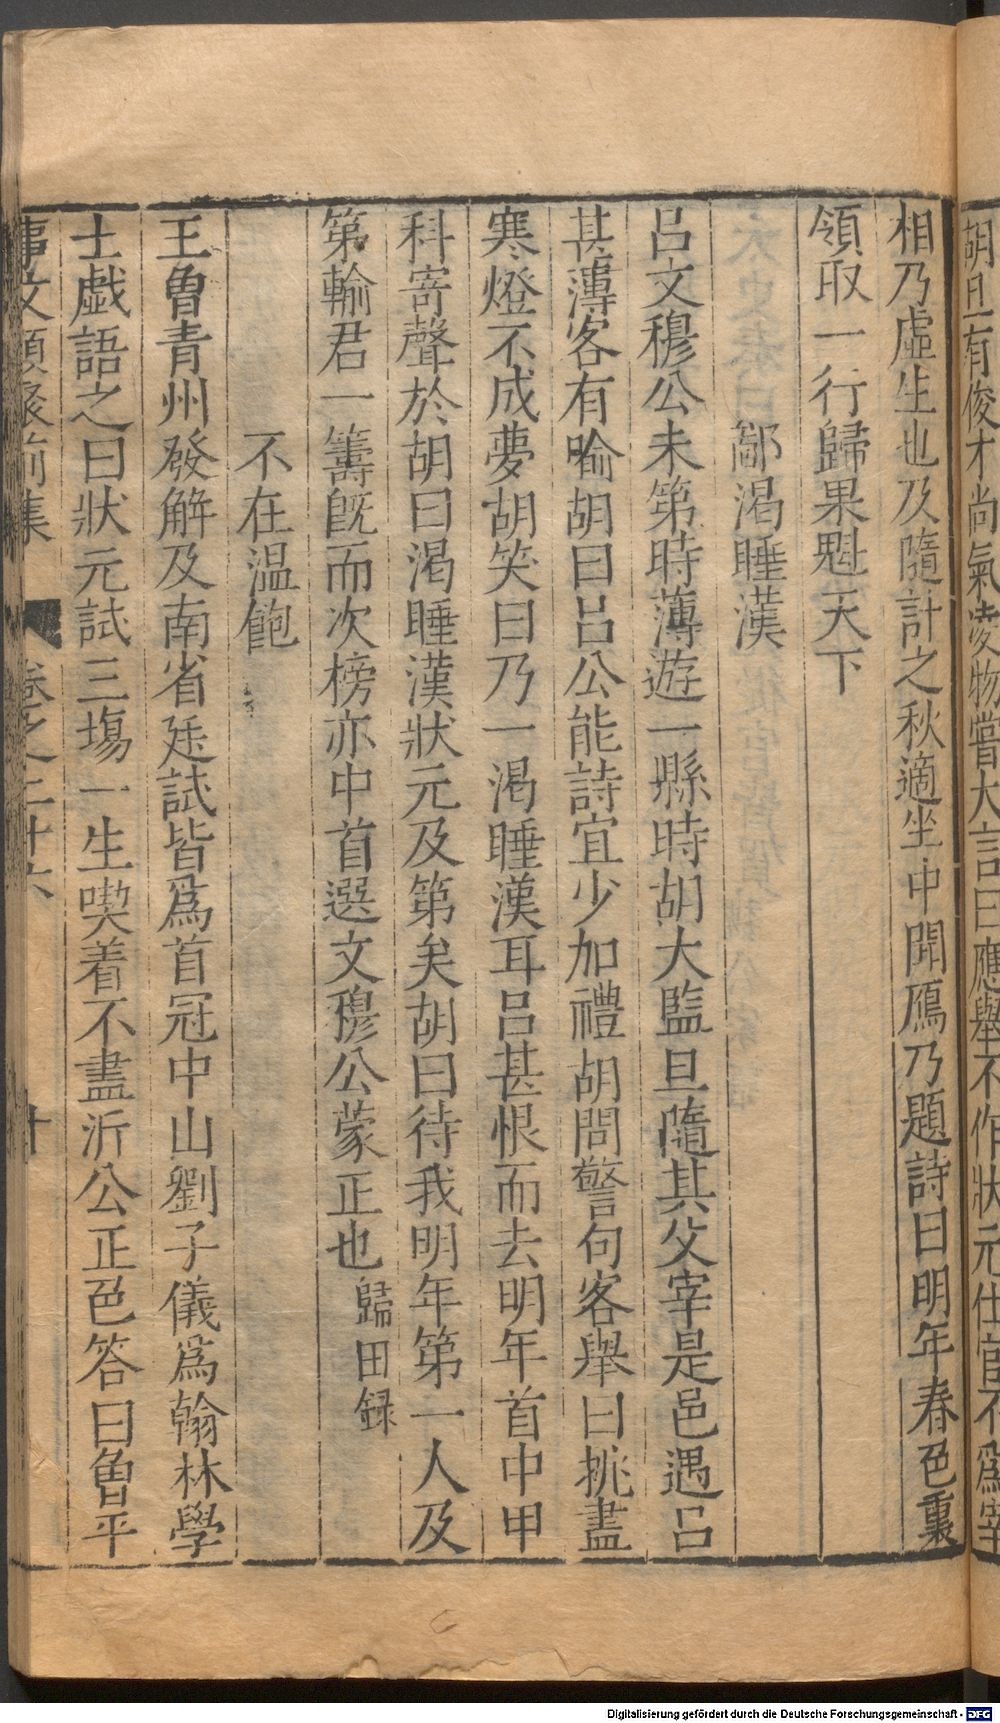 胡旦有俊才尚氣凌物嘗大言曰應舉不作狀元仕宦不爲宰
相乃虛生也及隨計之秋適坐中聞鴈乃題詩曰明年春色裏
領取一行歸果魁天下
鄙渴睡漢
呂文穆公未第時薄遊一縣時胡大監旦隨其父宰是邑遇呂
甚薄客有喻胡曰呂公能詩宜少加禮胡問警句客舉曰挑盡
寒燈不成夢胡笑曰乃一渴睡漢耳呂甚恨而去明年首中甲
科寄聲於胡曰渴睡漢狀元及第矣胡曰待我明年第一人及
第輸君一籌旣而次榜亦中首選文穆公蒙正也歸田録
不在温飽
王魯青州發解及南省廷試皆爲首冠中山劉子儀爲翰林學
士戲語之曰狀元試三塲一生喫着不盡沂公正色答曰魯平
事文類聚前集 卷之二十六 十
Digitalisierung gefördert durch die Deutsche Forschungsgemeinschaft - DFG